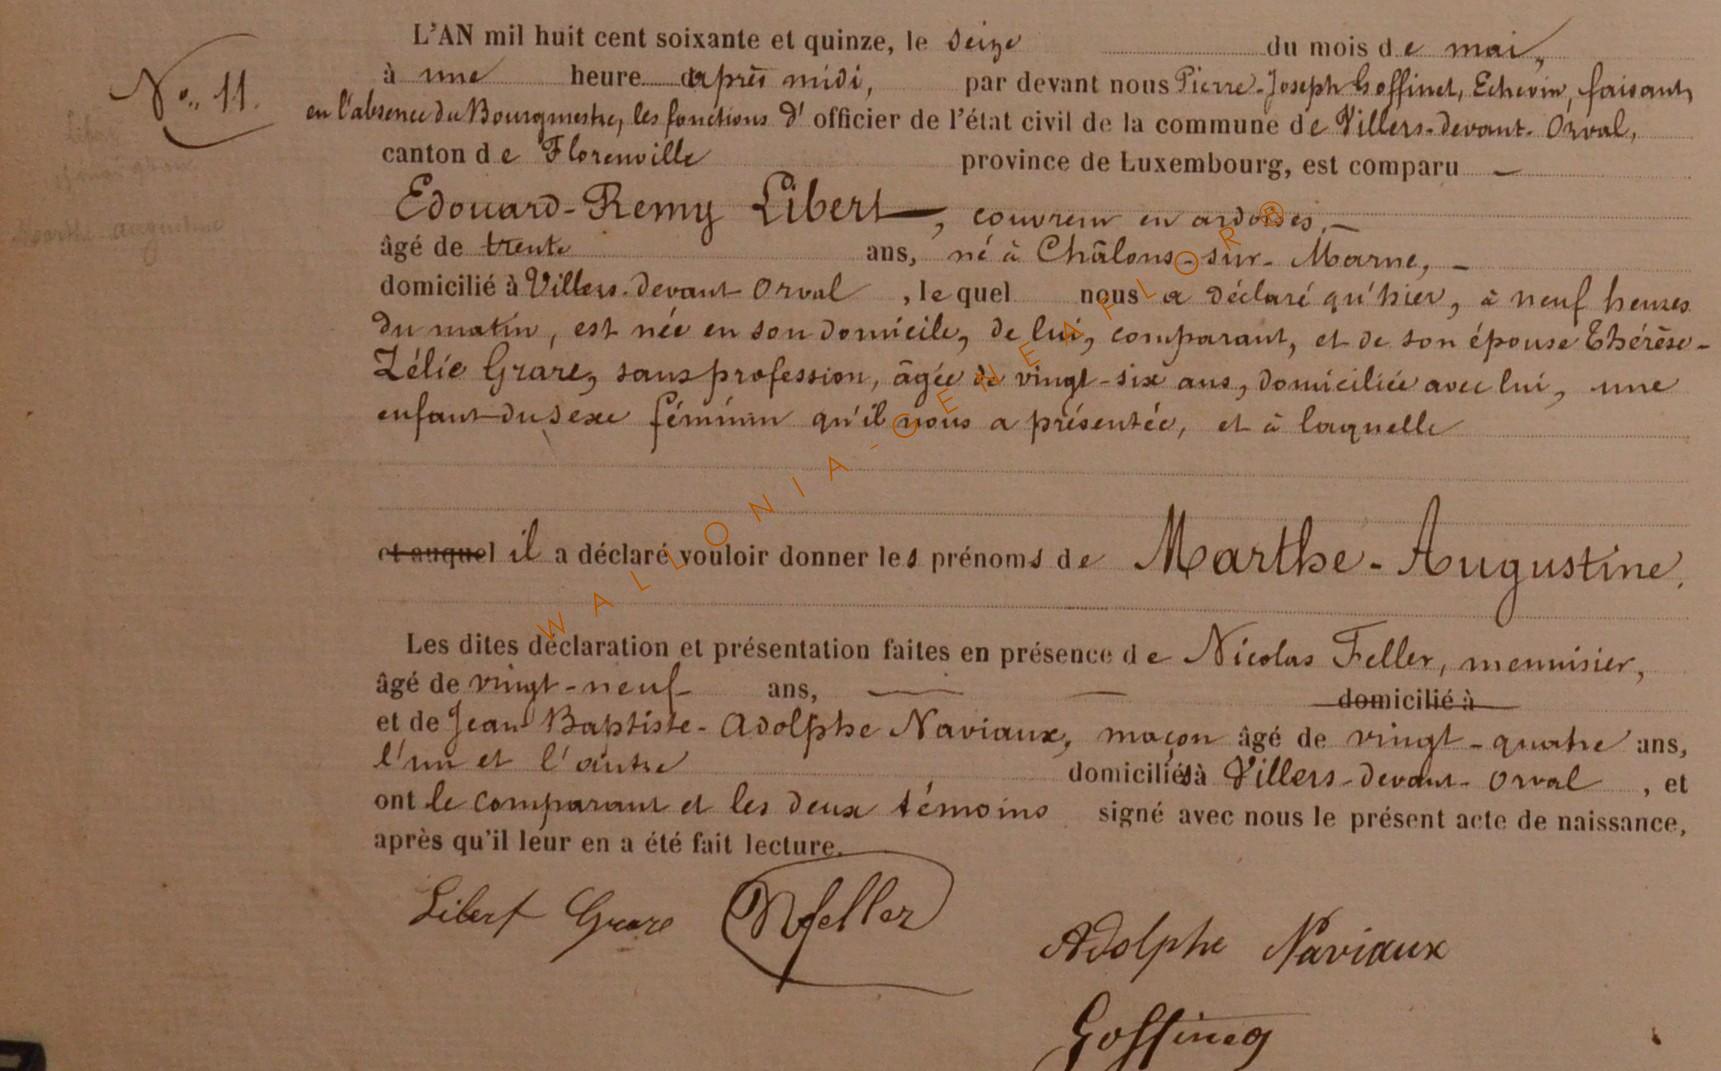 L'AN mil huit cent soixante et quinze, le seize du mois de mai,
No. 11. à une heure après midi, par devant nous Pierre-Joseph Goffinet, Echevin, faisant,
en l'absence du Bourgmestre, les fonctions d'officier de l'état civil de la commune de Villers-devant-Orval,
canton de Florenville province de Luxembourg, est comparu —
Edouard-Remy Libert, couvreur en ardoises, —
âgé de trente ans, né à Châlons-sur-Marne, —
domicilié à Villers-devant-Orval, lequel nous a déclaré qu'hier, à neuf heures
du matin, est née en son domicile, de lui, comparant, et de son épouse Thérèse-
Zélie Grare, sans profession, âgée de vingt-six ans, domiciliée avec lui, une
enfant du sexe féminin qu'il nous a présentée, et à laquelle
et auquel il a déclaré vouloir donner les prénoms de Marthe-Augustine.
Les dites déclaration et présentation faites en présence de Nicolas Feller, menuisier,
âgé de vingt-neuf ans, — — domicilié à
et de Jean Baptiste-Adolphe Naviaux, maçon âgé de vingt-quatre ans,
l'un et l'autre domiciliés à Villers-devant-Orval, et
ont le comparant et les deux témoins signé avec nous le présent acte de naissance,
après qu'il leur en a été fait lecture.
Libert Grare N feller
Adolphe Naviaux
Goffinet
Marthe augustine
WALLONIA-GENEAFLOR®